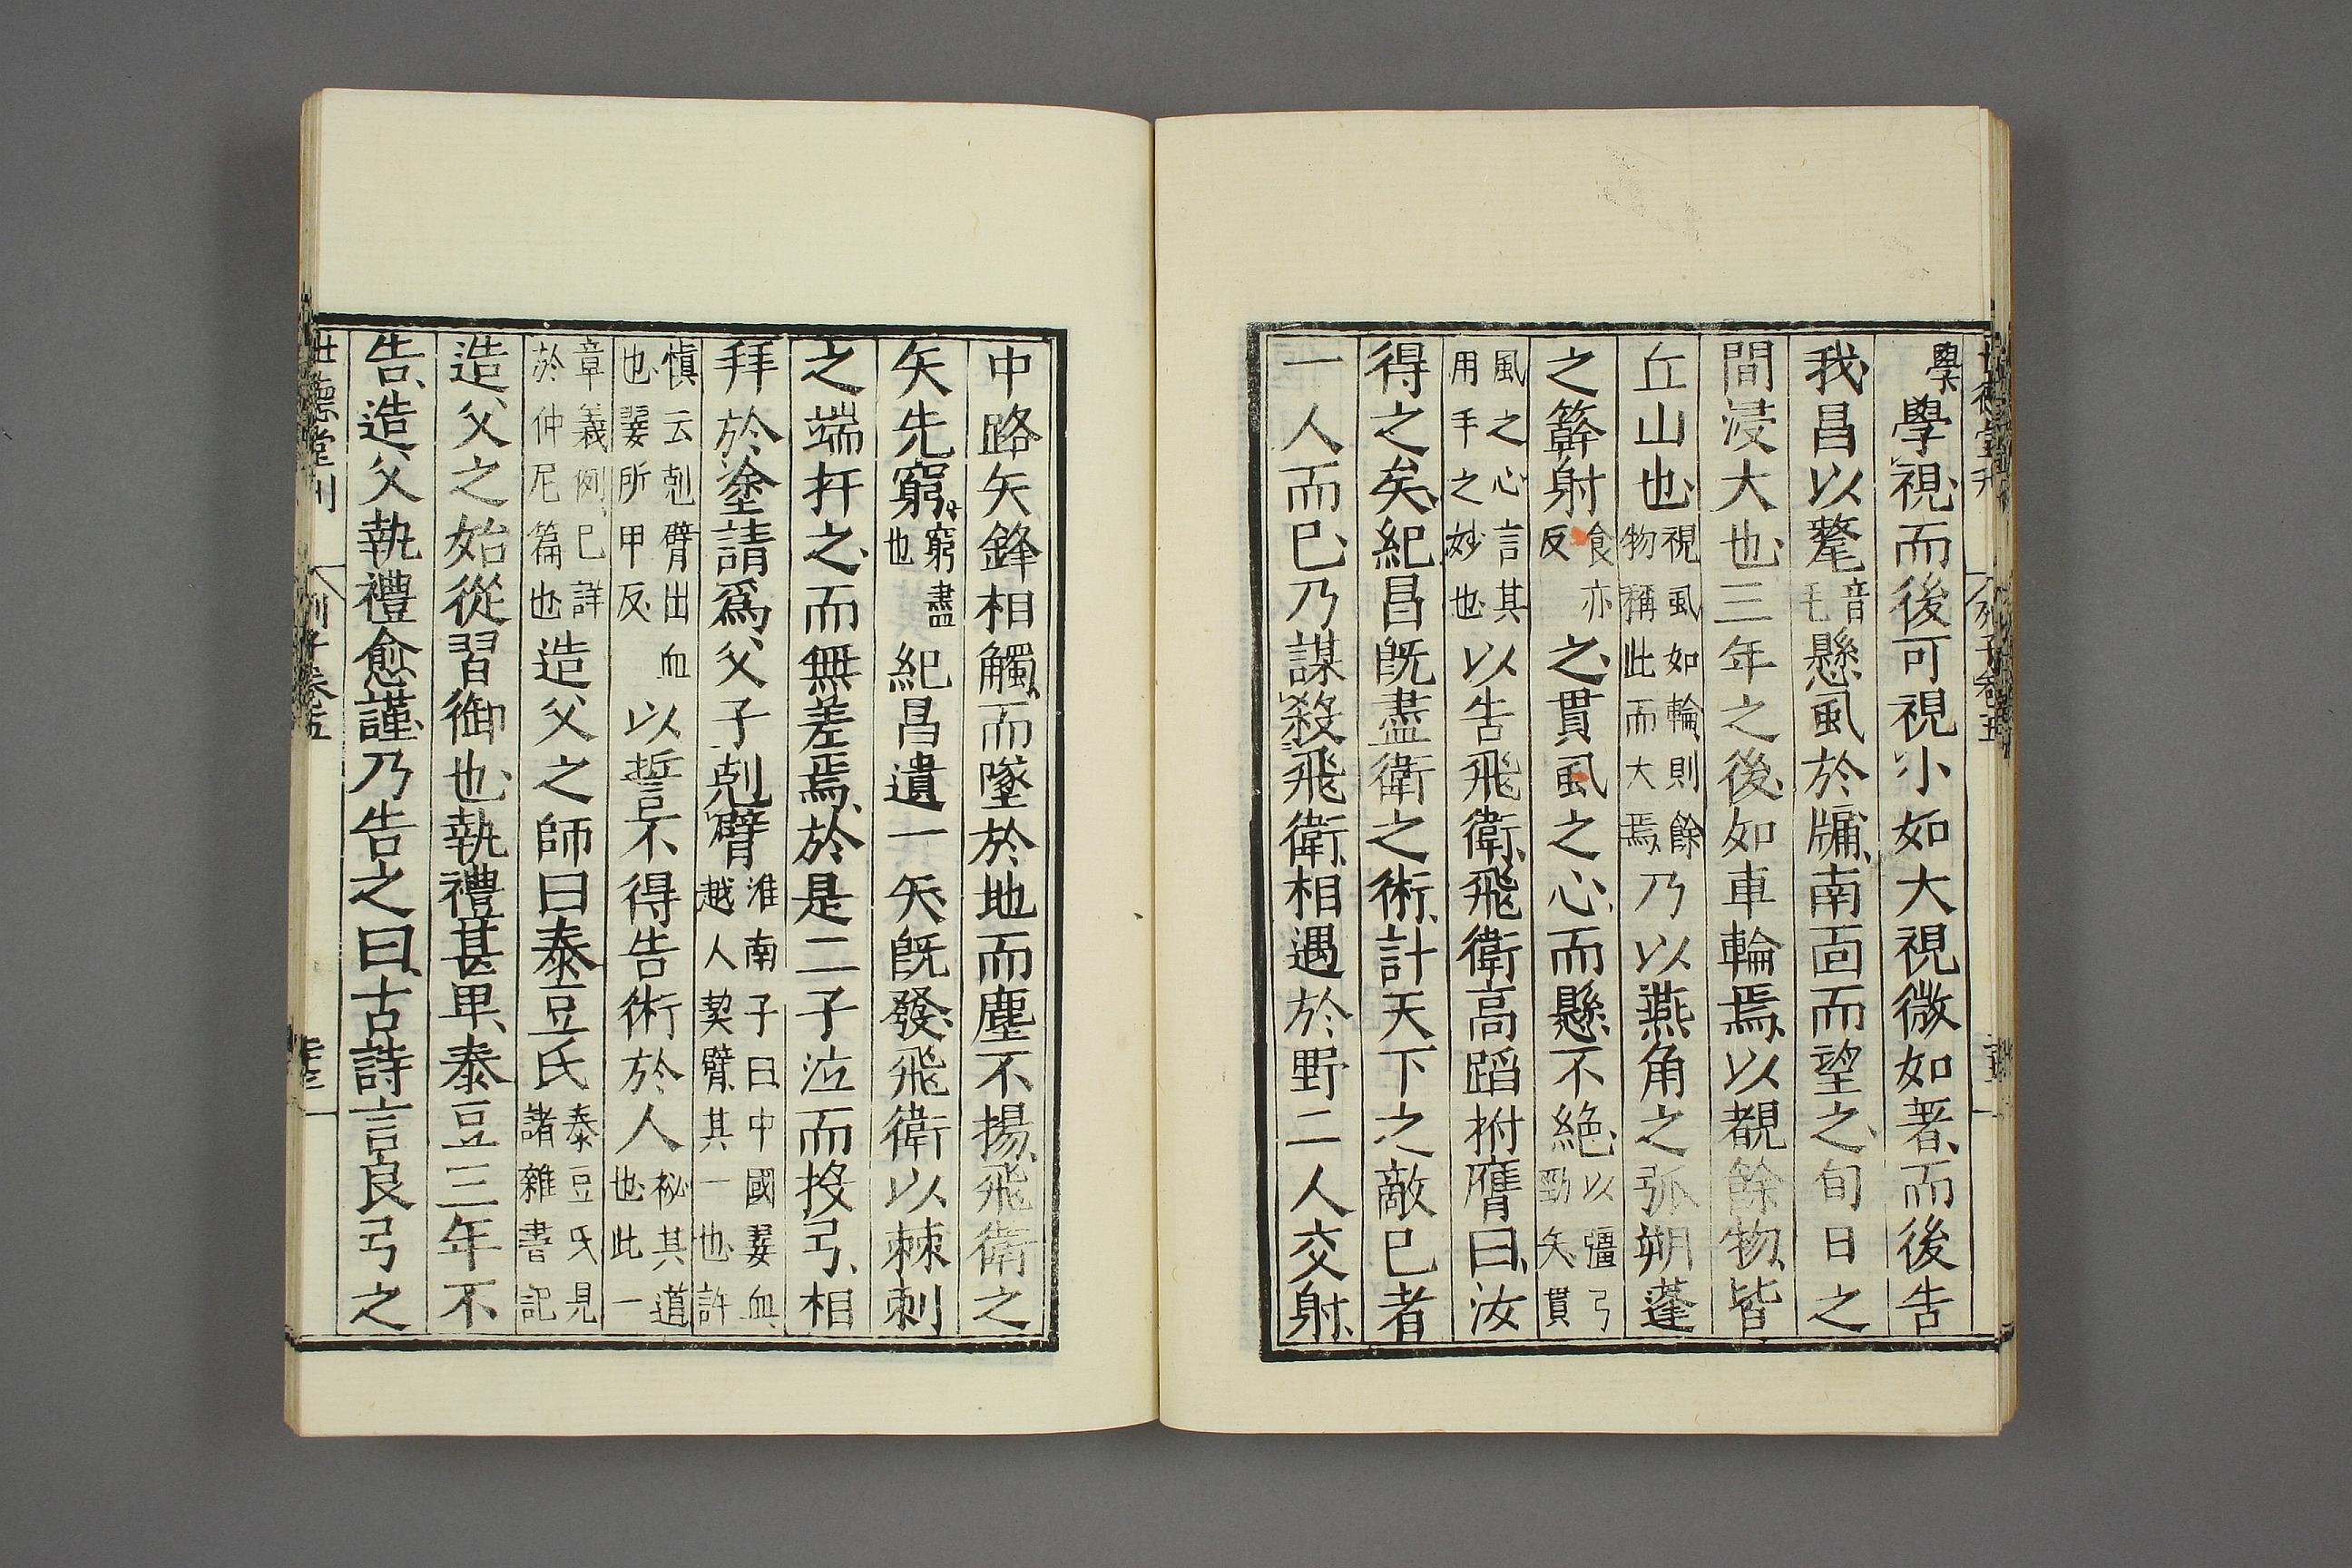 世德堂刊 列子卷五
學學視而後可視小如大視微如著而後告
我昌以氂音毛懸虱於牖南面而望之旬日之
間浸大也三年之後如車輪焉以覩餘物皆
丘山也視虱如輪則餘物稱此而大焉乃以燕角之弧朔蓬
之簳射食亦反之貫虱之心而懸不絶以彊弓勁矢貫
風之心言其用手之妙也以告飛衛飛衛高蹈拊膺曰汝
得之矣紀昌旣盡衛之術計天下之敵已者
一人而已乃謀殺飛衛相遇於野二人交射
中路矢鋒相觸而墜於地而塵不揚飛衛之
矢先窮窮盡也紀昌遺一矢旣發飛衛以棘刺
之端扞之而無差焉於是二子泣而投弓相
拜於塗請爲父子剋臂淮南子曰中國㰱血越人契臂其一也許
慎云剋臂出血也㰱所甲反以誓不得告術於人祕其道也此一
章義例已詳於仲尼篇也造父之師曰泰豆氏泰豆氏見諸雜書記
造父之始從習御也執禮甚卑泰豆三年不
告造父執禮愈謹乃告之曰古詩言良弓之
世德堂刊 列子卷五